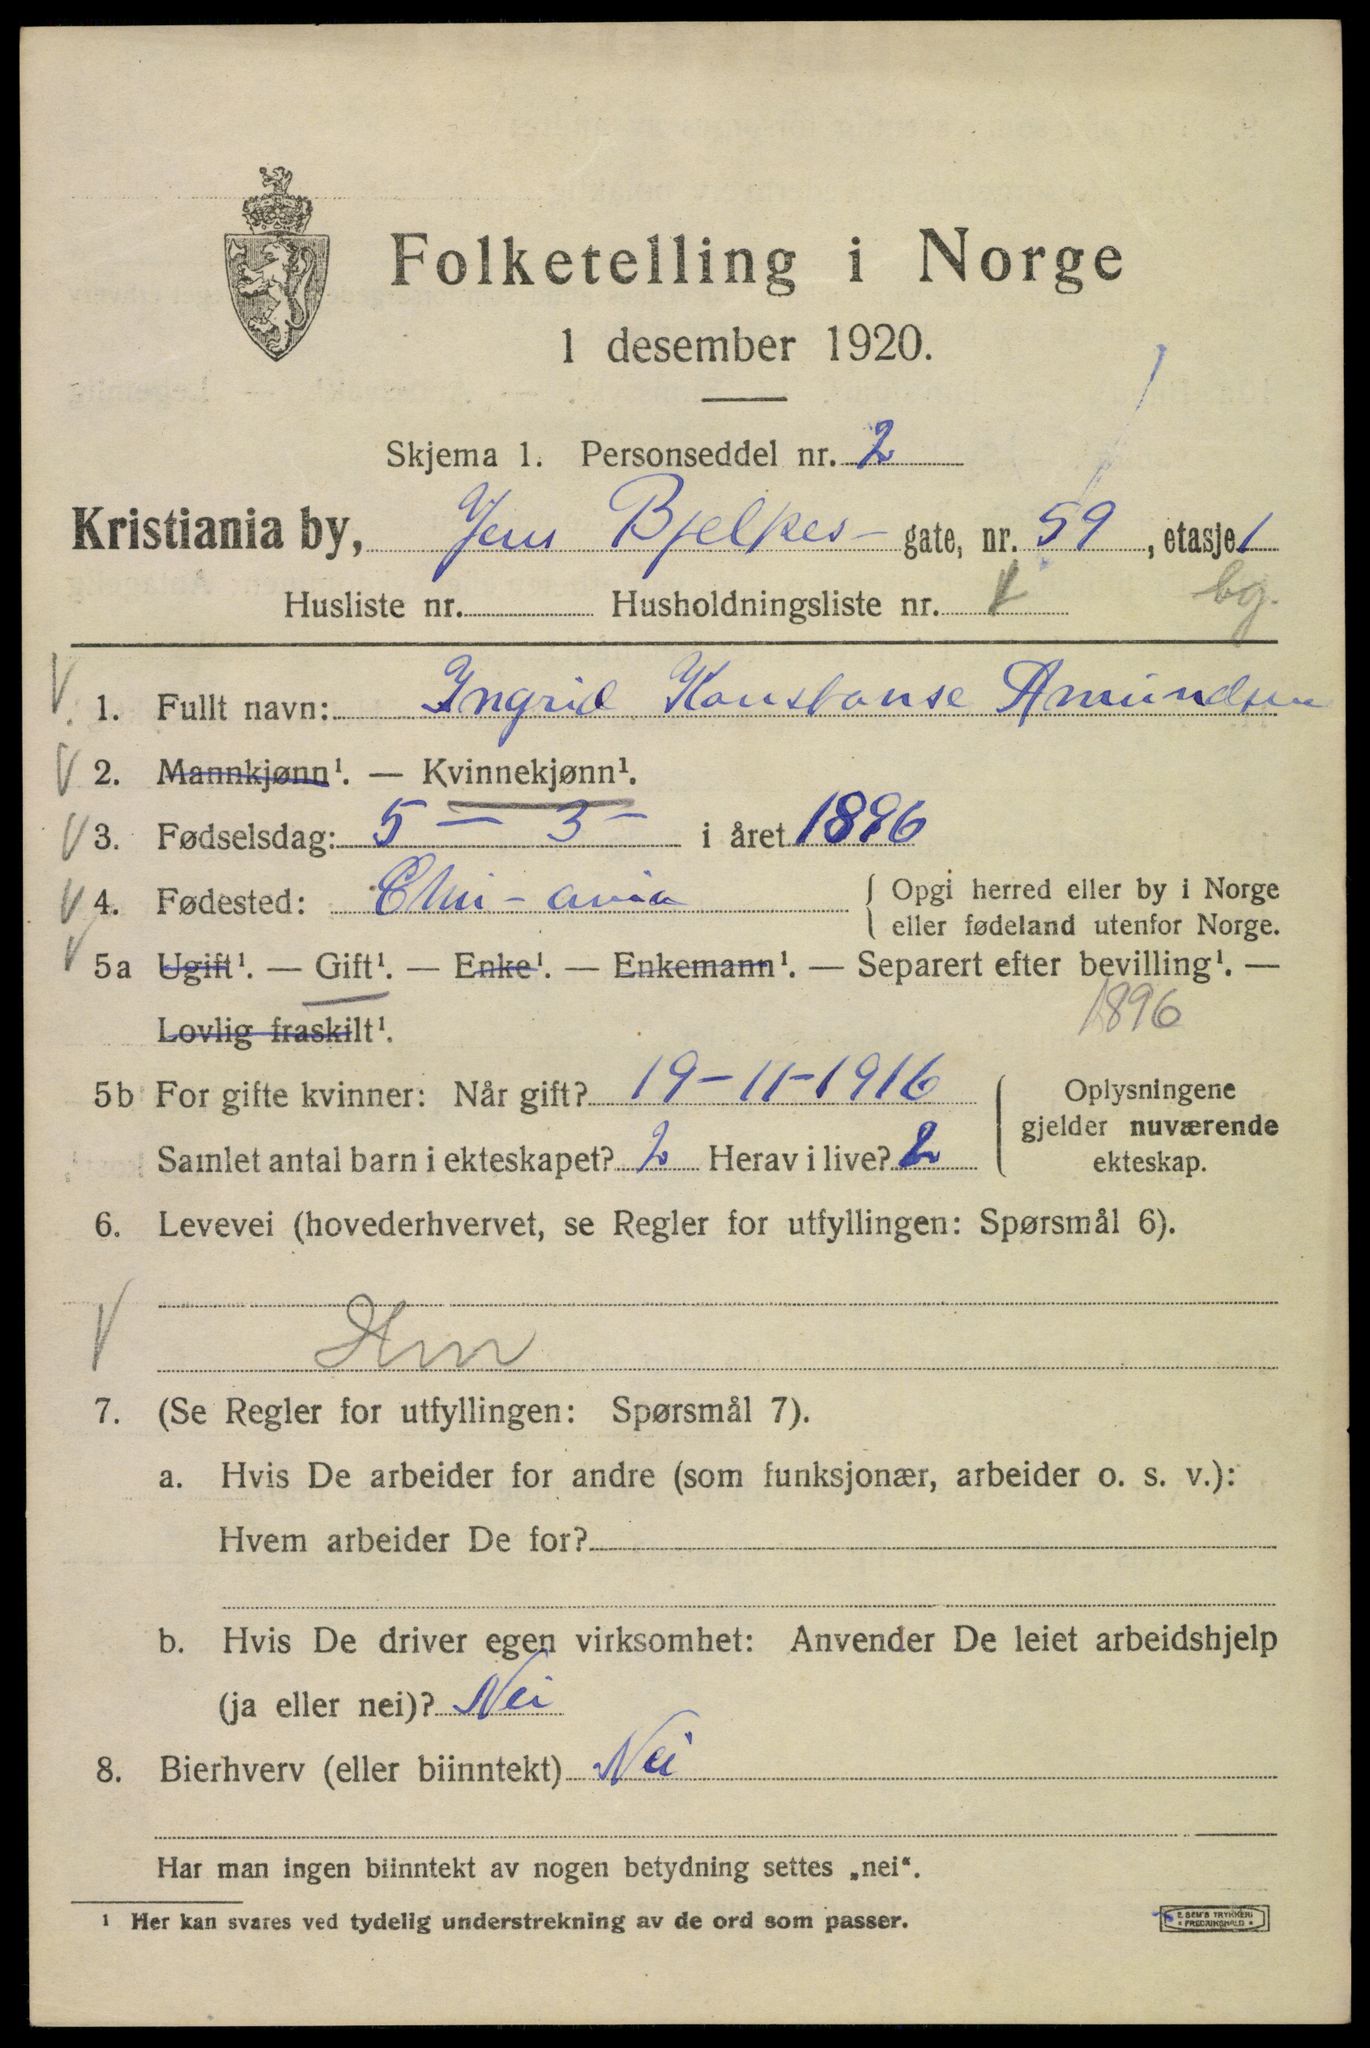 Folketelling i Norge
1 desember 1920.
Skjema 1. Personseddel nr. 2
Kristiania by, Jens Bjelkes - gate, nr. 59, etasje 1
Husliste nr. Husholdningsliste nr. 1 bg.
1. Fullt navn: Ingrid Konstanse Amundsen
2. Mannkjønn¹. — Kvinnekjønn¹.
3. Fødselsdag: 5 — 3 — i året 1896
4. Fødested: Chri-ania { Opgi herred eller by i Norge
eller fødeland utenfor Norge.
5a Ugift¹. — Gift¹. — Enke¹. — Enkemann¹. — Separert efter bevilling¹. —
Lovlig fraskilt¹. 1896
5b For gifte kvinner: Når gift? 19-11-1916
Samlet antal barn i ekteskapet? 2 Herav i live? 2
Oplysningene
gjelder nuværende
ekteskap.
6. Levevei (hovederhvervet, se Regler for utfyllingen: Spørsmål 6).
Hm
7. (Se Regler for utfyllingen: Spørsmål 7).
a. Hvis De arbeider for andre (som funksjonær, arbeider o. s. v.):
Hvem arbeider De for?
b. Hvis De driver egen virksomhet: Anvender De leiet arbeidshjelp
(ja eller nei)? Nei
8. Bierhverv (eller biinntekt) Nei
Har man ingen biinntekt av nogen betydning settes „nei“.
¹ Her kan svares ved tydelig understrekning av de ord som passer.
E. SEM'S TRYKKERI
FREDRIKSHALD